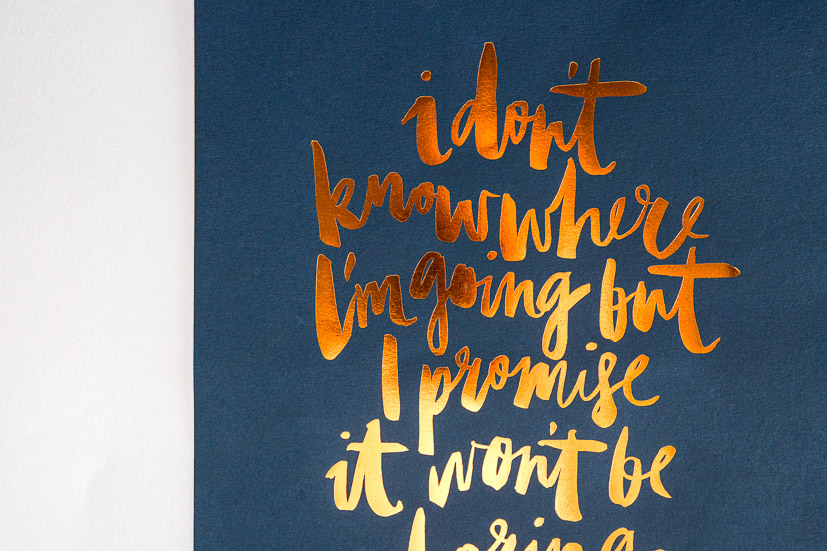 i don't
know where
I'm going but
I promise
it won't be
boring